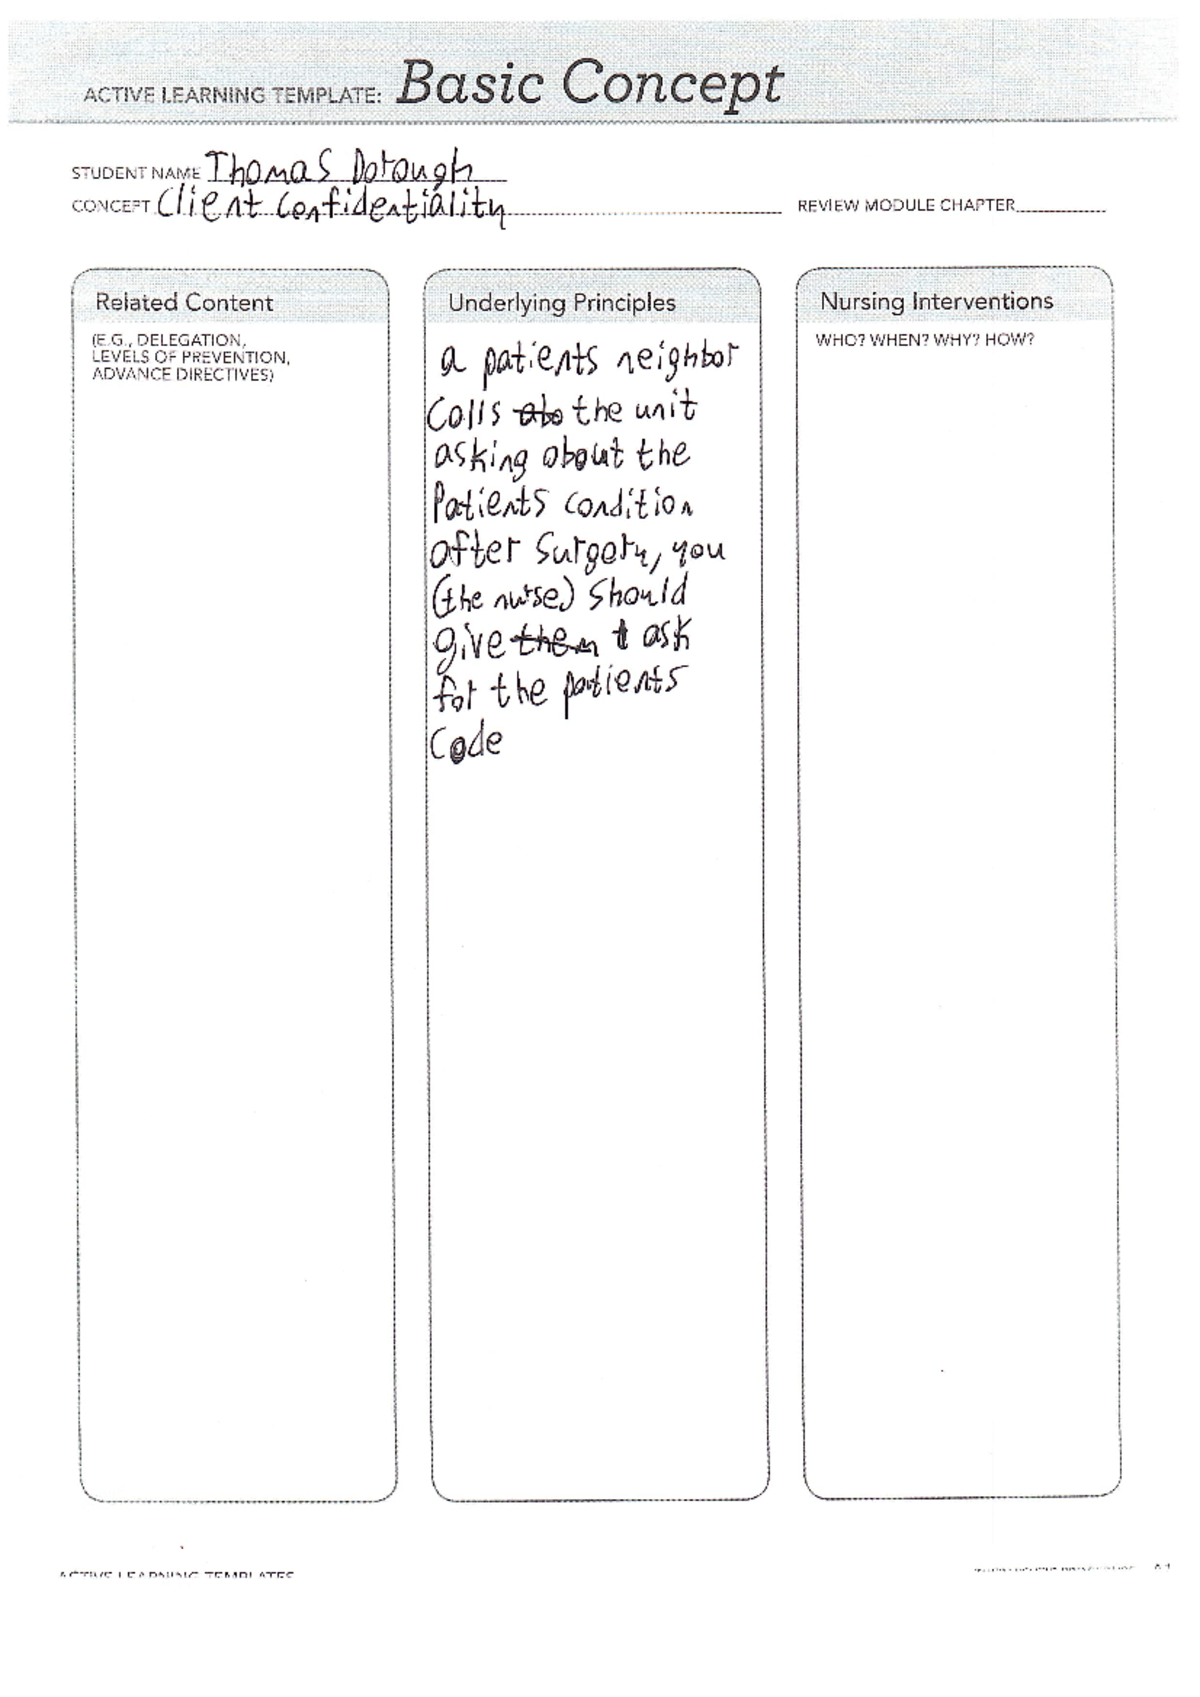 ACTIVE LEARNING TEMPLATE: Basic Concept
STUDENT NAME Thomas Dorough
CONCEPT Client Confidentiality REVIEW MODULE CHAPTER
Related Content
(E.G., DELEGATION,
LEVELS OF PREVENTION,
ADVANCE DIRECTIVES)
Underlying Principles
a patients neighbor
Calls abo the unit
asking about the
Patients condition
after Surgery, you
(the nurse) Should
give them t ask
for the patients
Code
Nursing Interventions
WHO? WHEN? WHY? HOW?
ACTIVE LEARNING TEMPLATES